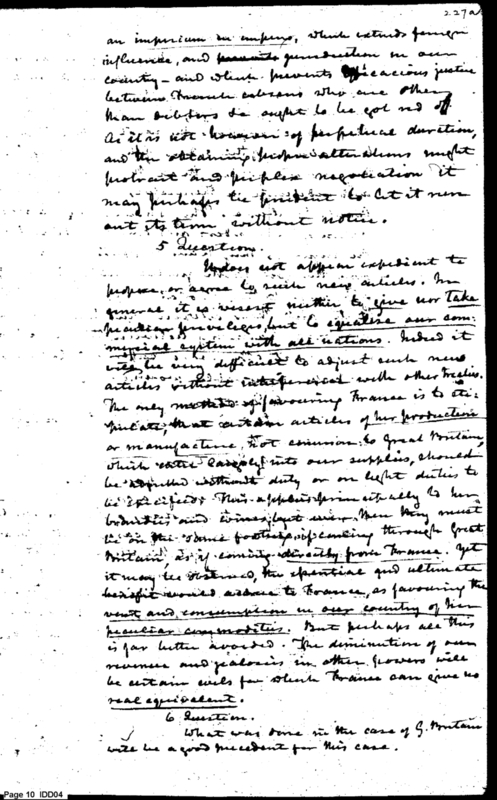 227a
an imperium in imperio, which extends foreign
influence, and jurisdiction in our
country – and which prevents efficacious justice
between French citizens who are other
than debtors &c ought to be got rid off
As it is not however of perpetual duration,
and the obtaining proper alterations might
protract and perplex negotiation it
may perhaps be prudent to let it run
out its term without notice.
5 Question.
It does not appear expedient to
propose, or agree to such new articles. In
general it is wisest neither to give nor take
peculiar privileges, but to equalize our com-
mercial system with all nations. Indeed it
will be very difficult to adjust such new
articles without interference with other treaties.
The only method of favouring France is to sti-
pulate, that certain articles of her production
or manufacture, not common to Great Britain,
which enter largely into our supplies, should
be admitted without duty or on light duties to
be specified. This applies principally to her
brandies and wines, but even then they must
be on the same footing if coming through Great
Britain, as if coming directly from France. Yet
it may be observed, the essential and ultimate
benefit would accrue to France, as favouring the
vent and consumption in our country of her
peculiar commodities. But perhaps all this
is far better avoided. The diminution of our
revenue and jealousies in other powers will
be certain evils for which France can give no
real equivalent.
6 Question.
What was done in the case of G. Britain
will be a good precedent for this case.
Page 10 IDD04